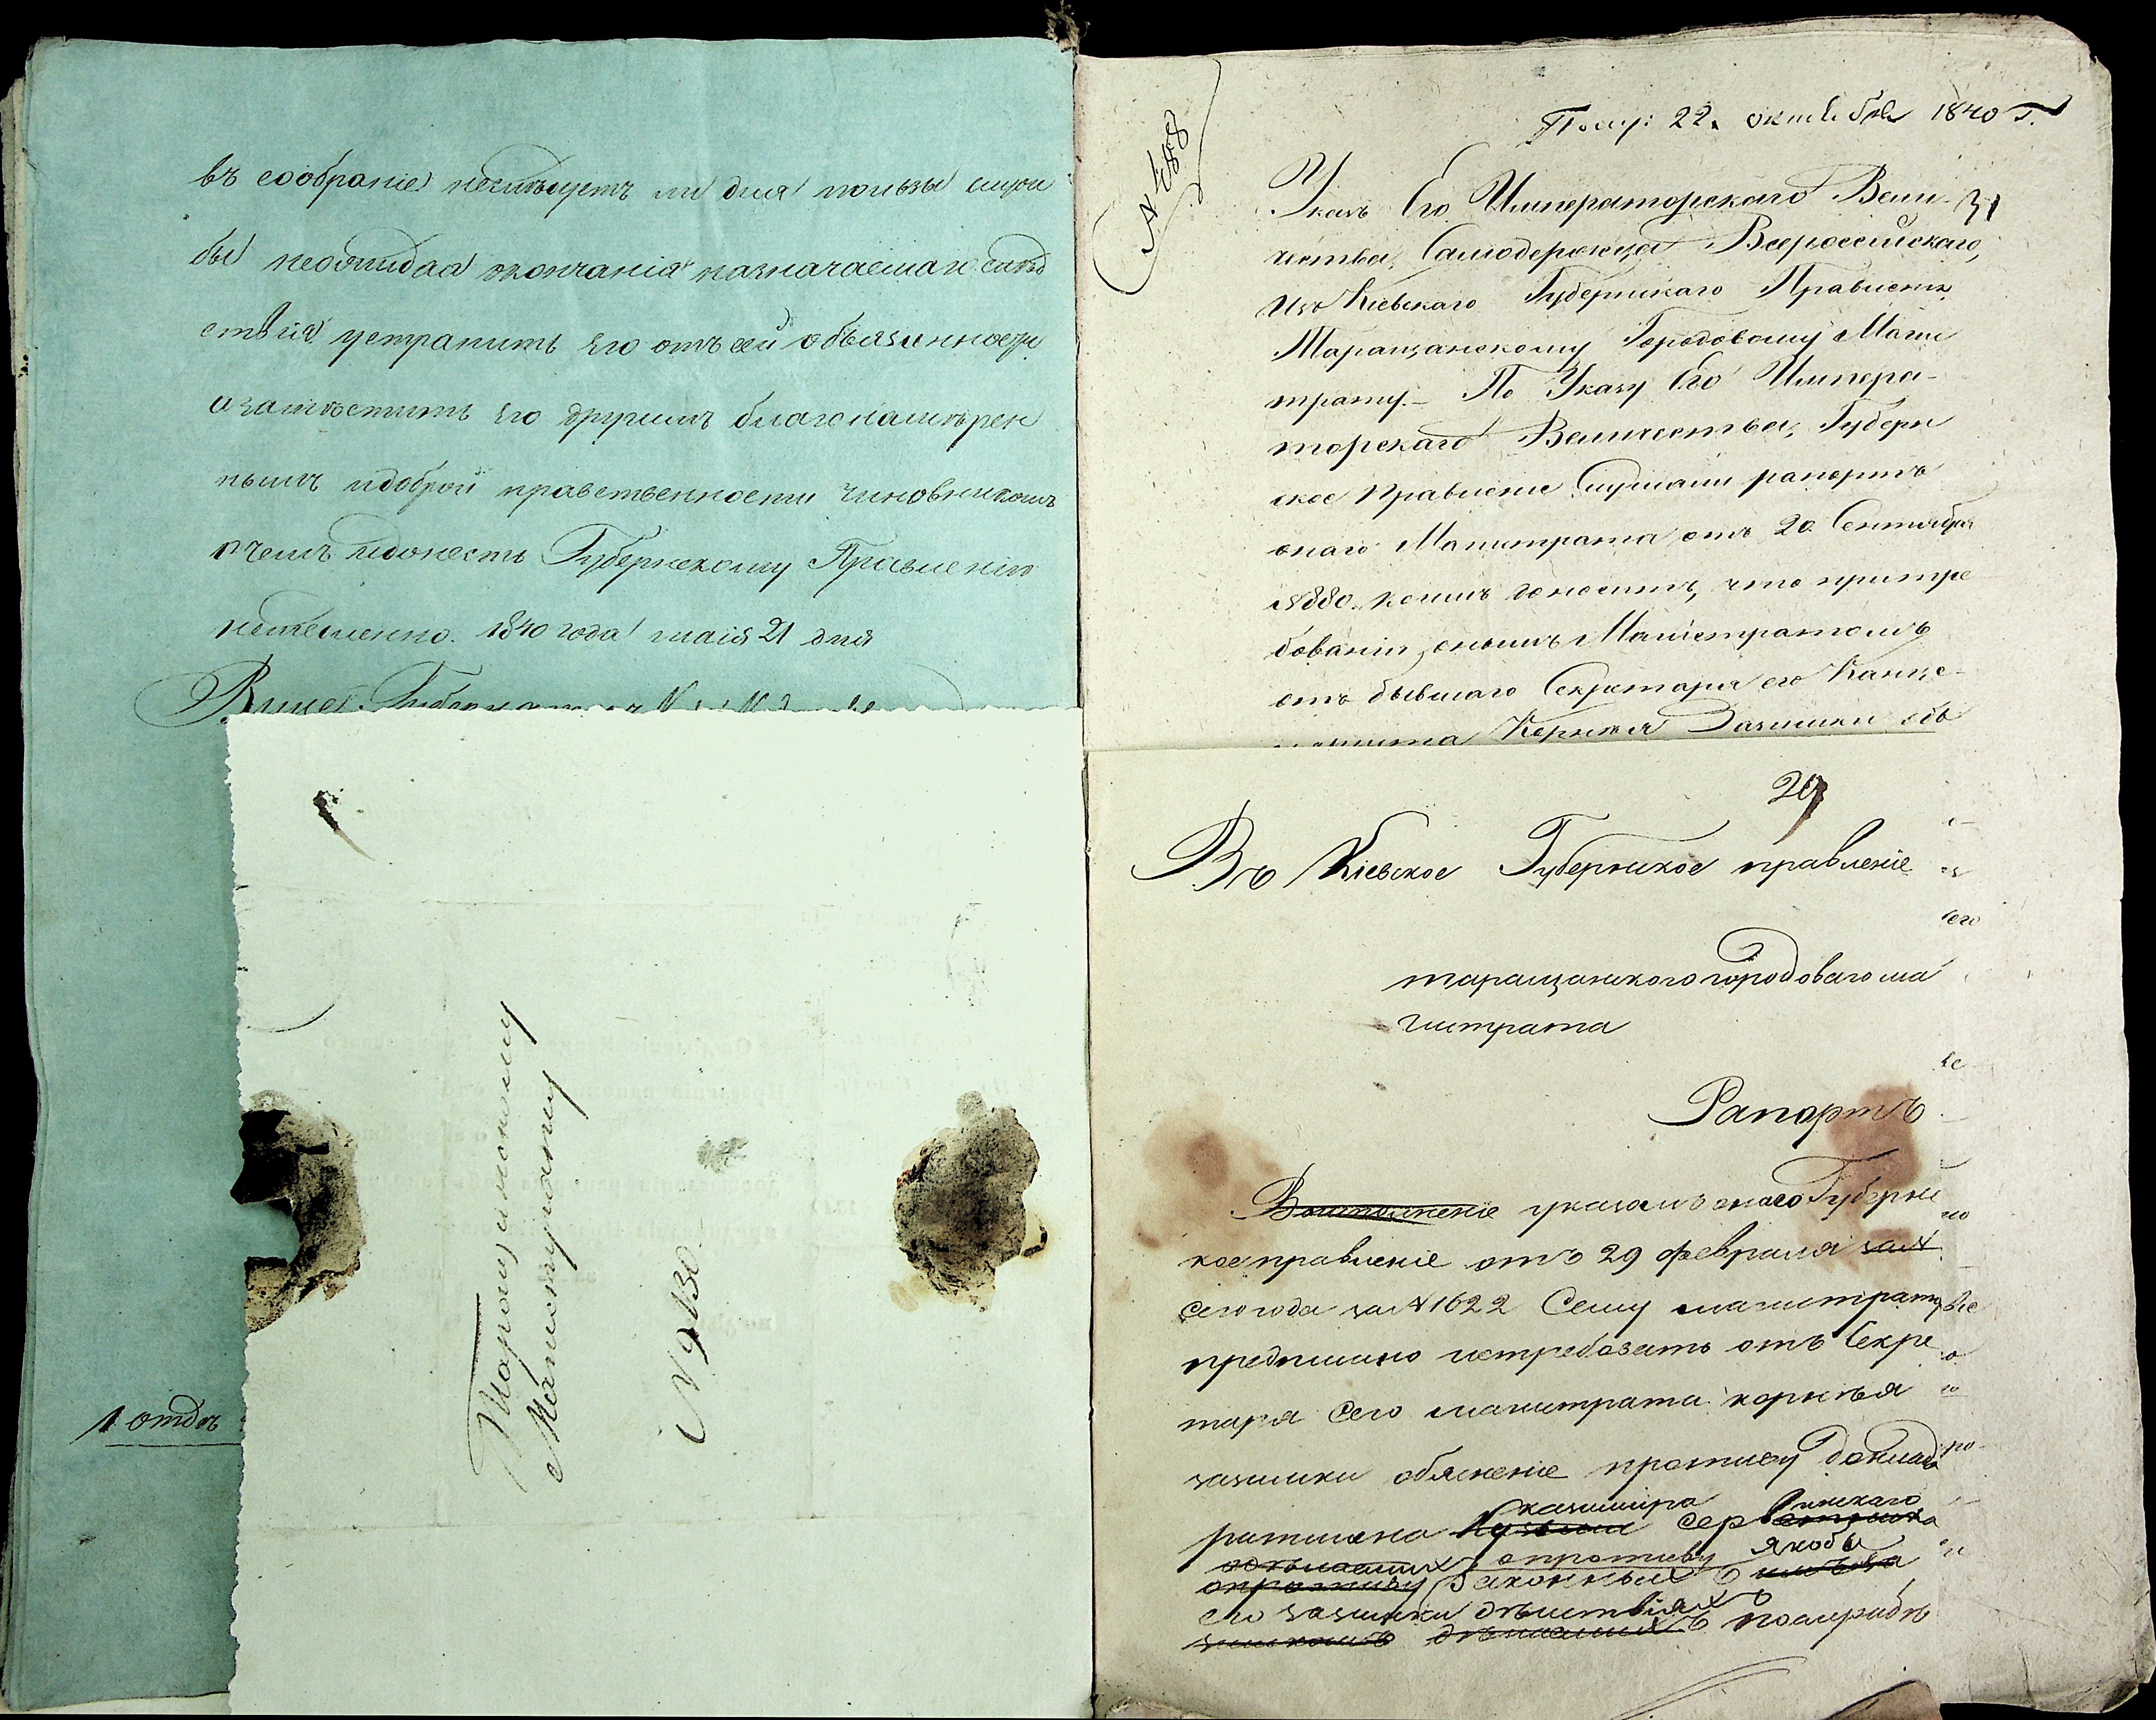 въ соображеніе неслѣдуетъ ли для пользы служ
бы неожидая окончанія назначаемаго слѣд
ствія устранить его отъ сей обязанности
изамѣстить его другимъ благонамѣрен
нымъ идоброй нравственности чиновникомъ
очемъ идонесть Губернскому Правленію
немѣдленно. 1840 года маія 21 дня
Вице Губернаторъ
1 отдѣ
Таращанскому
Магистрату
№ 9130
№ 488
Полу: 22. октября 1840 г.
31
Указъ Его Императорскаго Вели
чества, Самодержца Всероссійскаго,
Изъ Кіевскаго Губернскаго Правленія
Таращанскому Городовому Маги
страту. По Указу Его Импера-
торскаго Величества, Губерн
ское Правленіе Слушали рапортъ
онаго Магистрата отъ 20. Сентября
№880. коимъ доноситъ, что притре
бованіи онымъ Магистратомъ
отъ бывшаго Секретаря его Канце-
Корнея Зазимки объ
29
Въ Кіевское Губернское правленіе
таращанского городоваго ма
гистрата
Рапортъ
Воисполненіе указомъ онаго Губернс
кое правленіе отъ 29 февраля за№
сего года за №1622 Сему магистрату
предписано истребовать отъ Секре
таря Сего магистрата корнѣя
зазимки обясненіе противу доклада
казимира
ратмана Сер
опротиву якобы
опротиву законныхъ
его зазимки дѣйствіяхъ